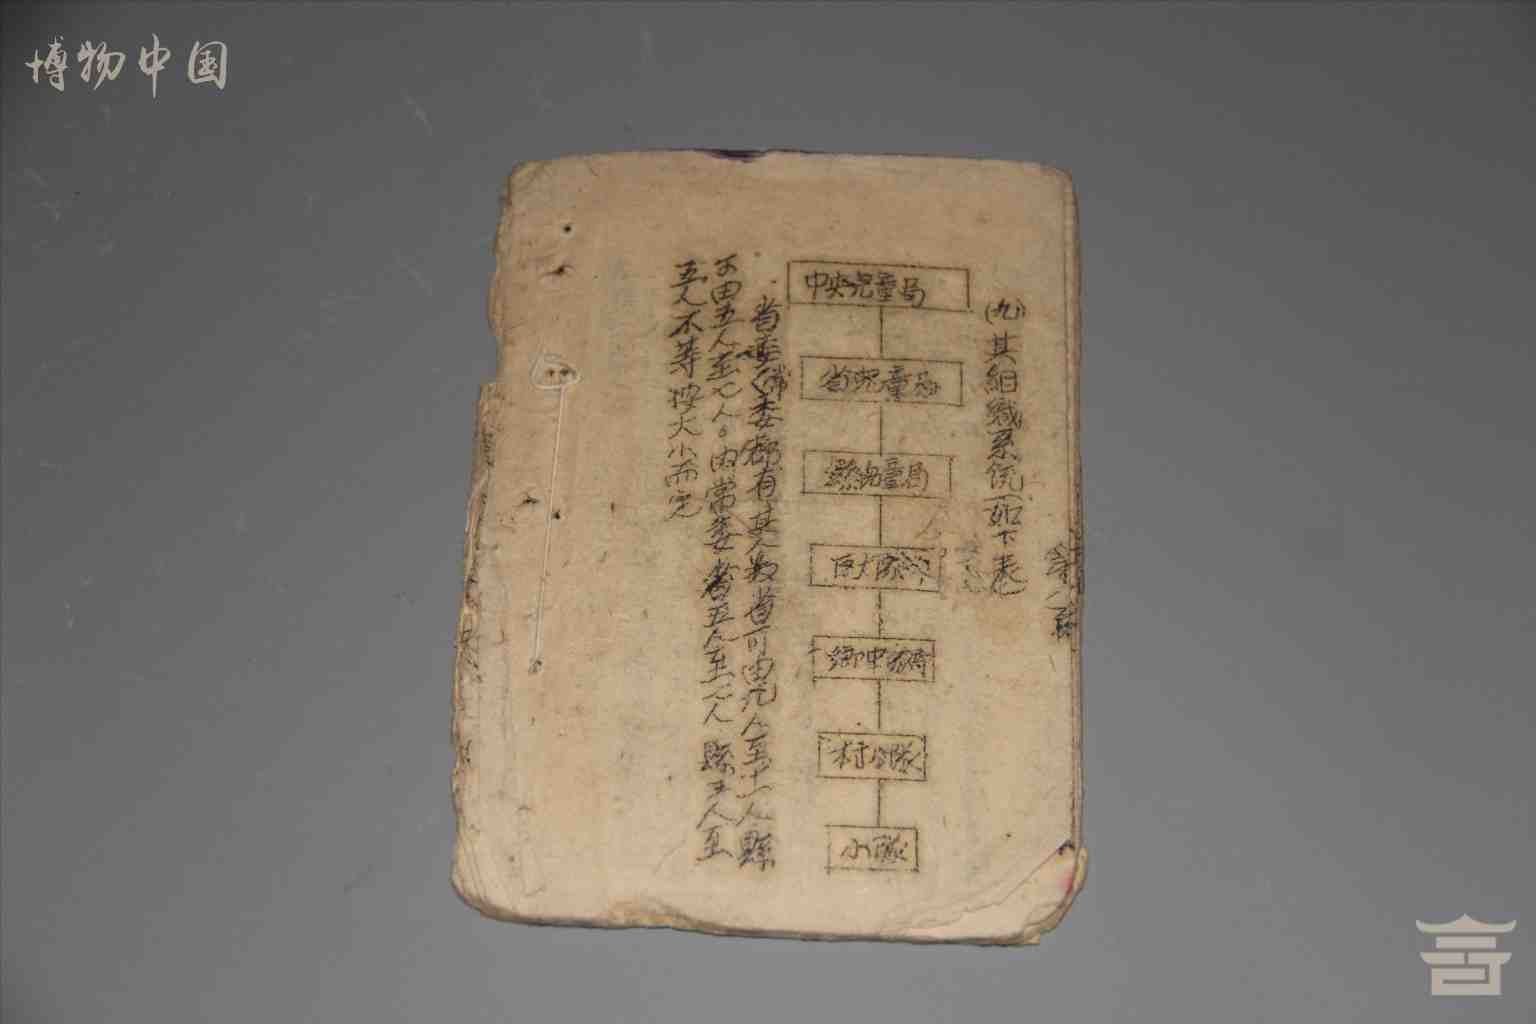 博物中国
(九)其組織系統如下表
中央兒童局
省兒童局
縣兒童局
區大隊
鄉中隊
村分隊
小隊
省委縣委都有其人數省可由九人至十一人縣
可由五人至七人。內常委省五人至七人縣三人至
五人不等按大小而定